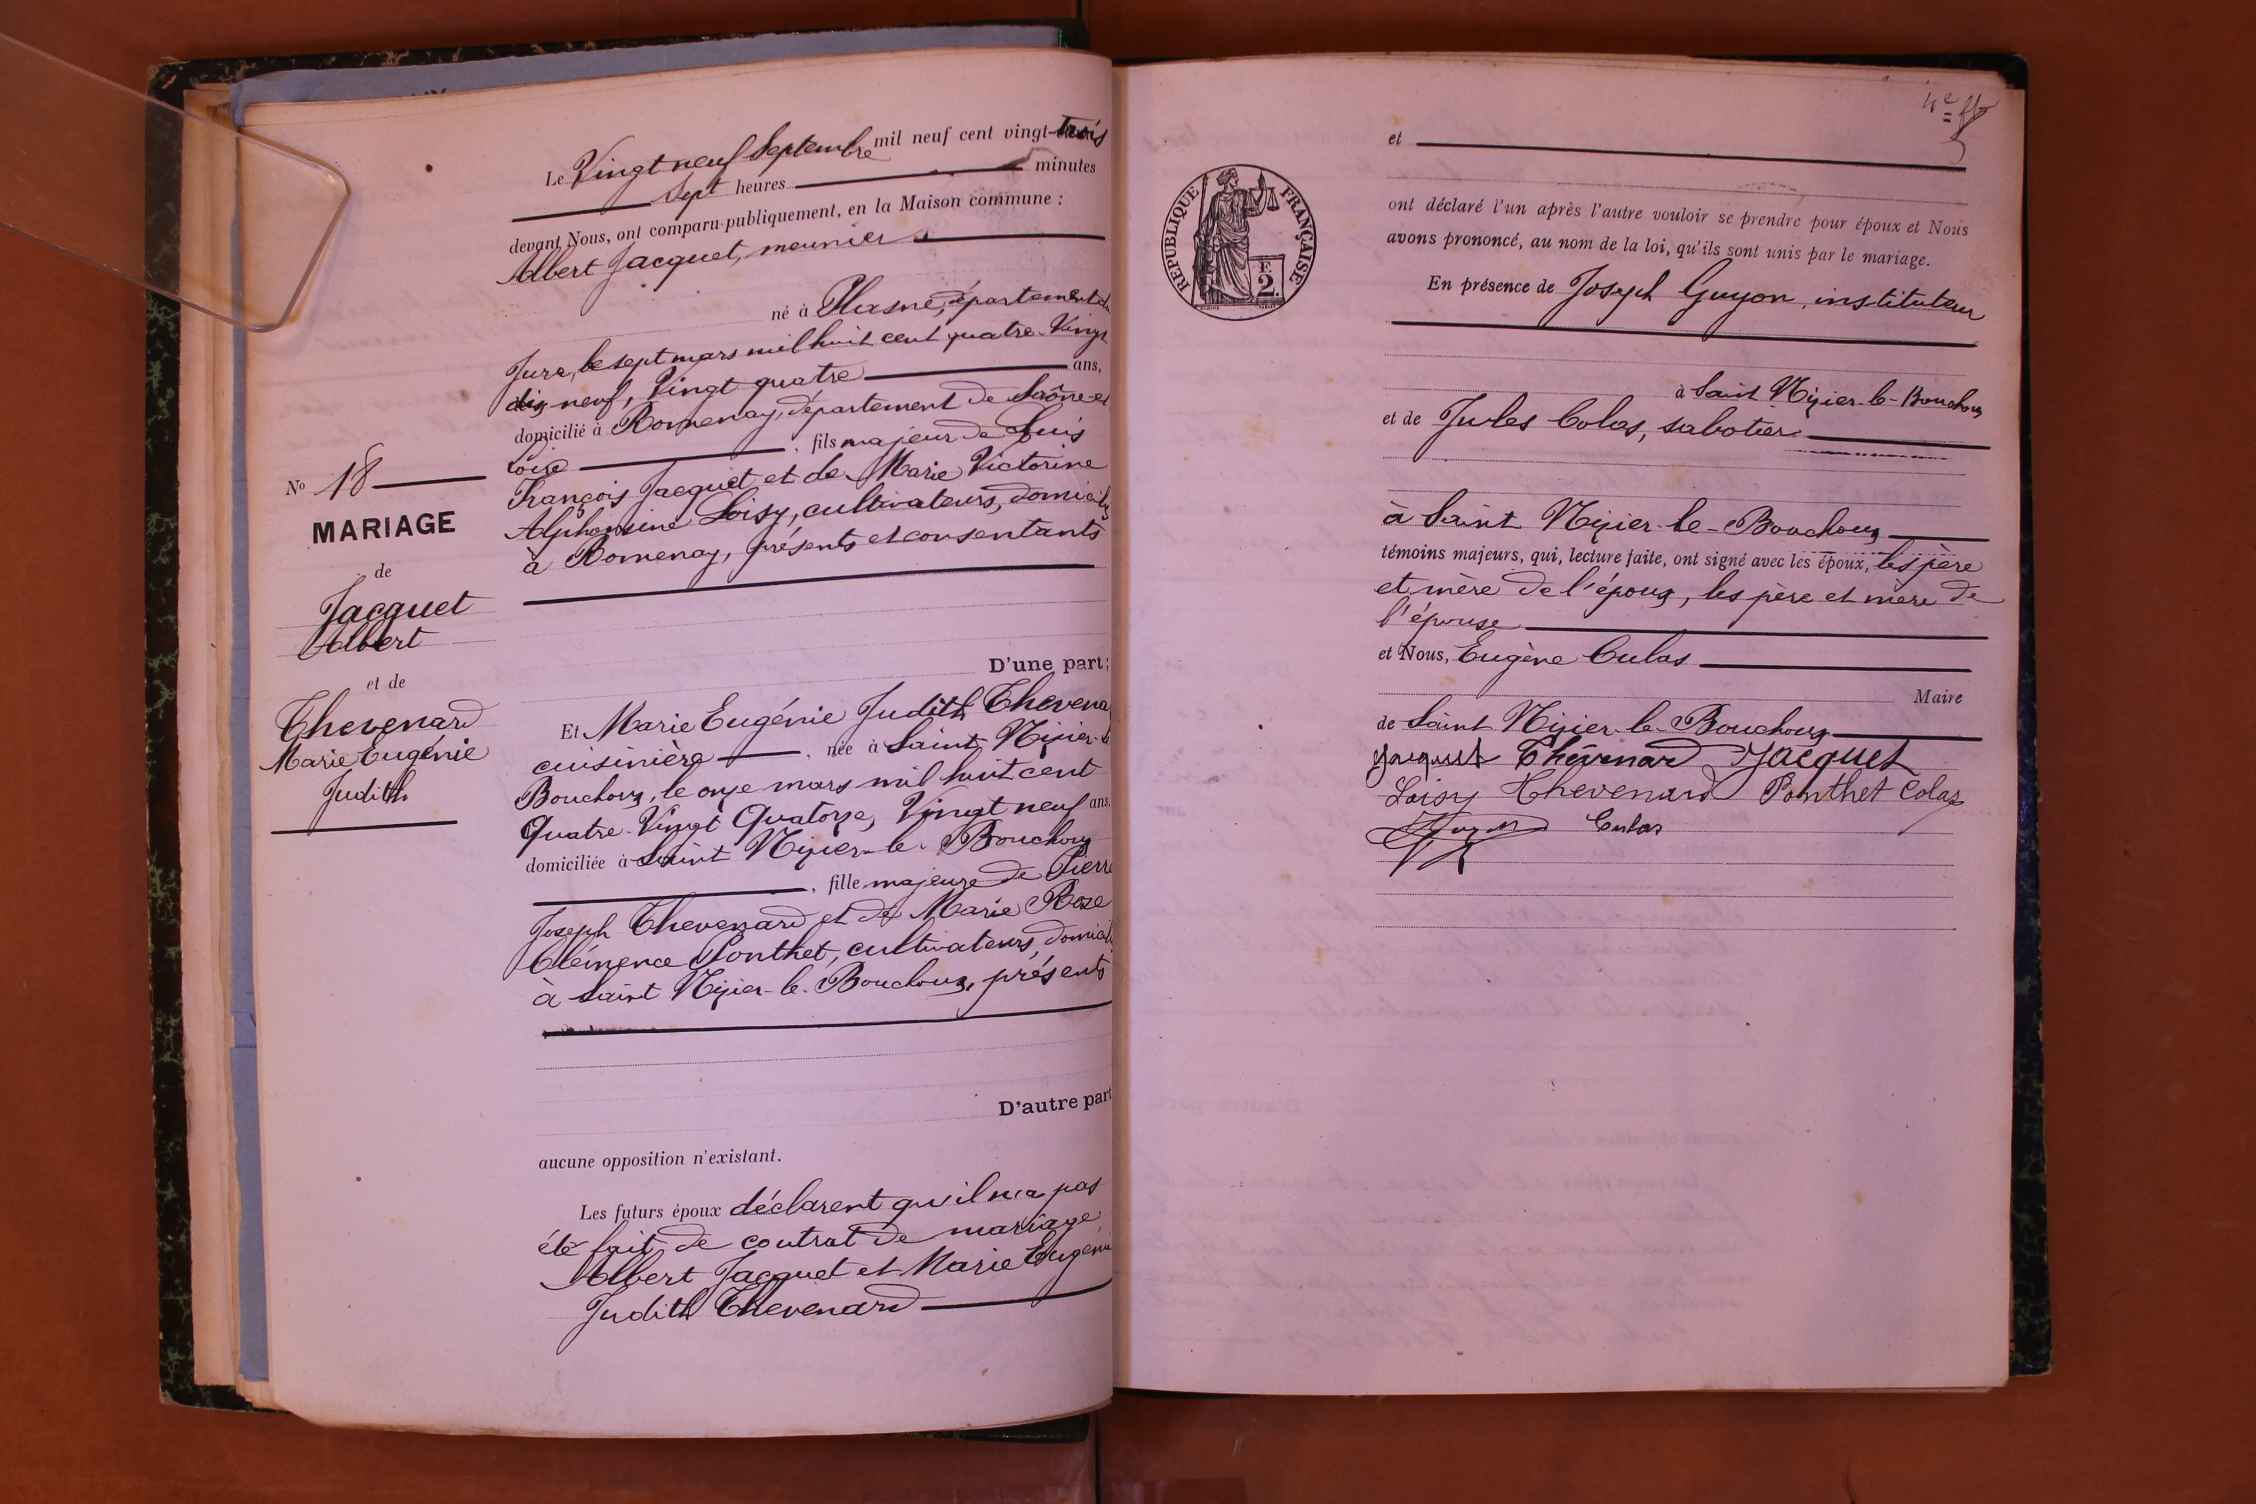 Le Vingt neuf Septembre mil neuf cent vingt-trois
sept heures minutes
devant Nous, ont comparu publiquement, en la Maison commune :
Albert Jacquet, meunier
né à Plasne, département du
Jura, le sept mars mil huit cent quatre-Vingt
dix neuf, Vingt quatre ans,
domicilié à Romenay, département de Saône-et
Loire, fils majeur de Louis
François Jacquet et de Marie Victorine
Alphonsine Loisy, cultivateurs, domiciliés
à Romenay, présents et consentants
D'une part;
No 18
MARIAGE
de
Jacquet
Albert
et de
Thevenard
Marie Eugénie
Judith
Et Marie Eugénie Judith Thevena
cuisinière, née à Saint Nizier-le
Bouchoux, le onze mars mil huit cent
Quatre-Vingt Quatorze, Vingt neuf ans,
domiciliée à Saint Nizier-le-Bouchoux
, fille majeure de Pierre
Joseph Thevenard et de Marie Rose
Clémence Ponthet, cultivateurs, domicil
à Saint Nizier-le-Bouchoux, présents
D'autre part
aucune opposition n'existant.
Les futurs époux déclarent qu'il n'a pas
été fait de contrat de mariage
Albert Jacquet et Marie Eugénie
Judith Thevenard
4e
et
REPUBLIQUE FRANÇAISE
F.
2.
ont déclaré l'un après l'autre vouloir se prendre pour époux et Nous
avons prononcé, au nom de la loi, qu'ils sont unis par le mariage.
En présence de Joseph Guyon, instituteur
à Saint Nizier-le-Bouchoux
et de Jules Colas, sabotier
à Saint Nizier-le-Bouchoux
témoins majeurs, qui, lecture faite, ont signé avec les époux, les père
et mère de l'époux, les père et mère de
l'épouse
et Nous, Eugène Culas
Maire
de Saint Nizier-le-Bouchoux
Jacquet Thévenard Jacquet
Loisy Thevenard Ponthet Colas
Guyon Culas